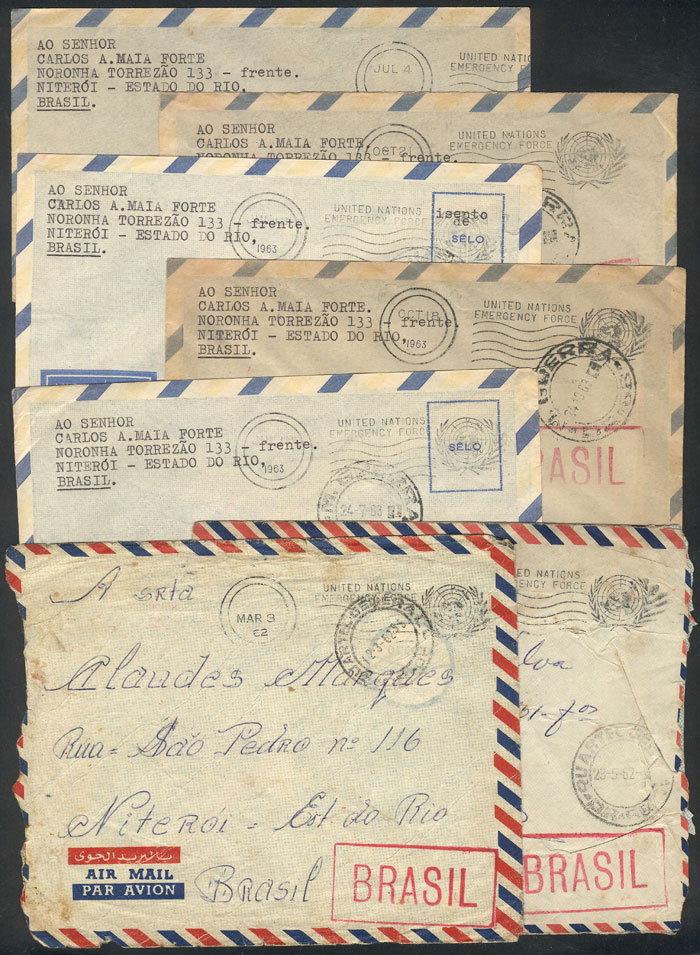 AO SENHOR
CARLOS A.MAIA FORTE
NORONHA TORREZÃO 133 - frente.
NITERÓI - ESTADO DO RIO,
BRASIL.
JUL 4
UNITED NATI
EMERGENCY F
AO SENHOR
CARLOS A.MAIA FORTE.
NORONHA TORREZÃO 133 - frente
OCT 21
UNITED NATIONS
EMERGENCY FORCE
AO SENHOR
CARLOS A.MAIA FORTE
NORONHA TORREZÃO 133 - frente.
NITERÓI - ESTADO DO RIO,
BRASIL.
1963
UNITED NATIONS
EMERGENCY FORC
isento
de
SELO
AO SENHOR
CARLOS A.MAIA FORTE.
NORONHA TORREZÃO 133 - frente.
NITERÓI - ESTADO DO RIO,
BRASIL.
OCT 18
1963
UNITED NATIONS
EMERGENCY FORCE
GUERRA
RASIL
AO SENHOR
CARLOS A.MAIA FORTE
NORONHA TORREZÃO 133 - frente.
NITERÓI - ESTADO DO RIO,
BRASIL.
1963
UNITED NATIONS
EMERGENCY FORC
SELO
24-7-63
ED NATIONS
ENCY FORCE
lva
QUARTEL GENERAL
28-5-62
BRASIL
A srta
MAR 3
62
UNITED NATIONS
EMERGENCY FORCE
QUARTEL GENERAL
12-3-62
Alaudes Marques
Rua = São Pedro nº 116
Niteroi = Est do Rio
Brasil
بالبريد الجوى
AIR MAIL
PAR AVION
BRASIL